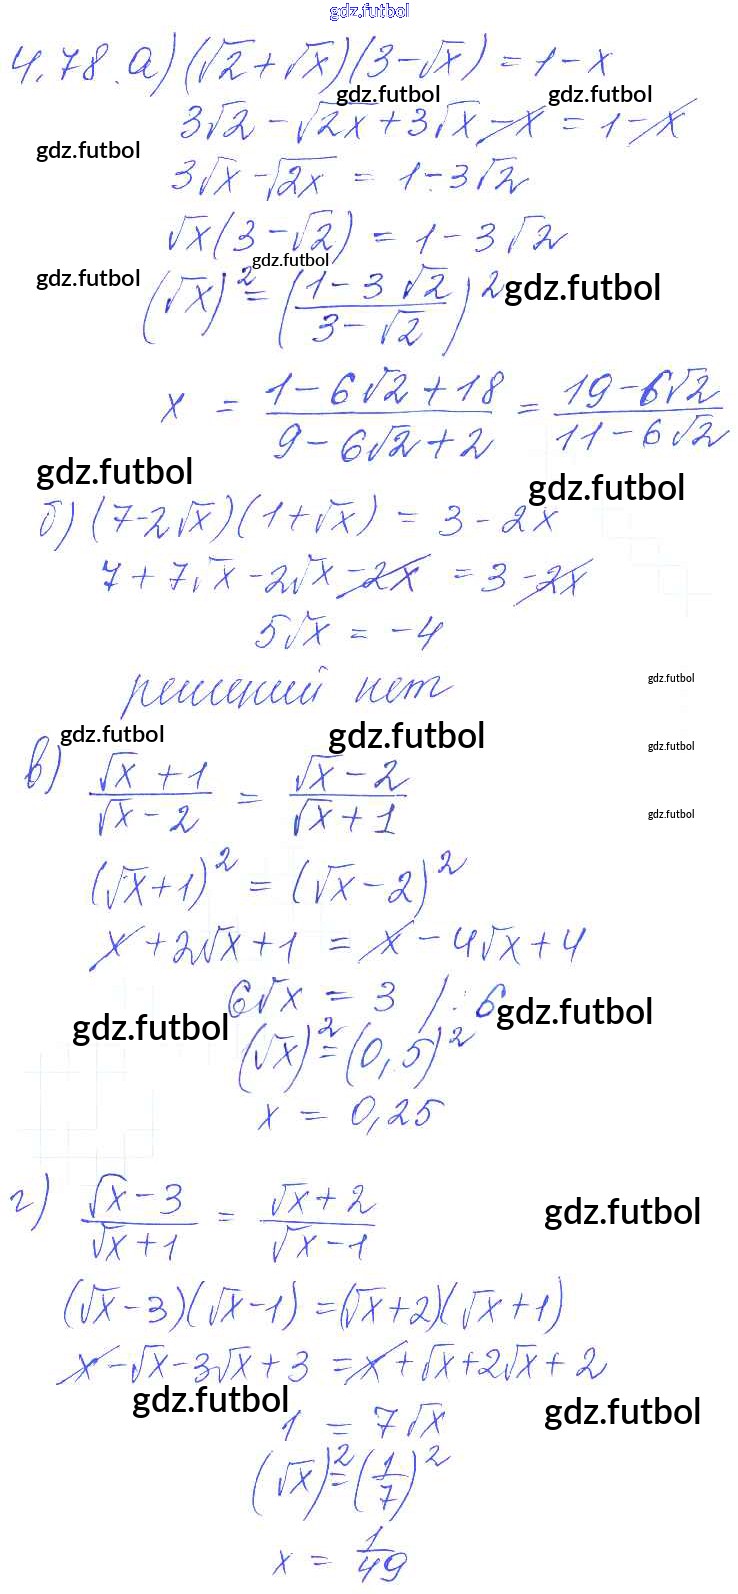 gdz.futbol
4.78. а) (√2 + √x)(3 - √x) = 1 - x
gdz.futbol gdz.futbol
3√2 - √2x + 3√x - x = 1 - x
gdz.futbol
3√x - √2x = 1 - 3√2
√x(3 - √2) = 1 - 3√2
gdz.futbol
gdz.futbol
(√x)² = ((1 - 3√2)/(3 - √2))²
gdz.futbol
x = (1 - 6√2 + 18)/(9 - 6√2 + 2) = (19 - 6√2)/(11 - 6√2)
gdz.futbol
gdz.futbol
б) (7 - 2√x)(1 + √x) = 3 - 2x
7 + 7√x - 2√x - 2x = 3 - 2x
5√x = -4
решений нет
gdz.futbol
gdz.futbol gdz.futbol
gdz.futbol
в) (√x + 1)/(√x - 2) = (√x - 2)/(√x + 1)
gdz.futbol
(√x + 1)² = (√x - 2)²
x + 2√x + 1 = x - 4√x + 4
6√x = 3 / : 6
gdz.futbol
gdz.futbol
(√x)² = (0,5)²
x = 0,25
г) (√x - 3)/(√x + 1) = (√x + 2)/(√x - 1)
gdz.futbol
(√x - 3)(√x - 1) = (√x + 2)(√x + 1)
x - √x - 3√x + 3 = x + √x + 2√x + 2
gdz.futbol
gdz.futbol
1 = 7√x
(√x)² = (1/7)²
x = 1/49